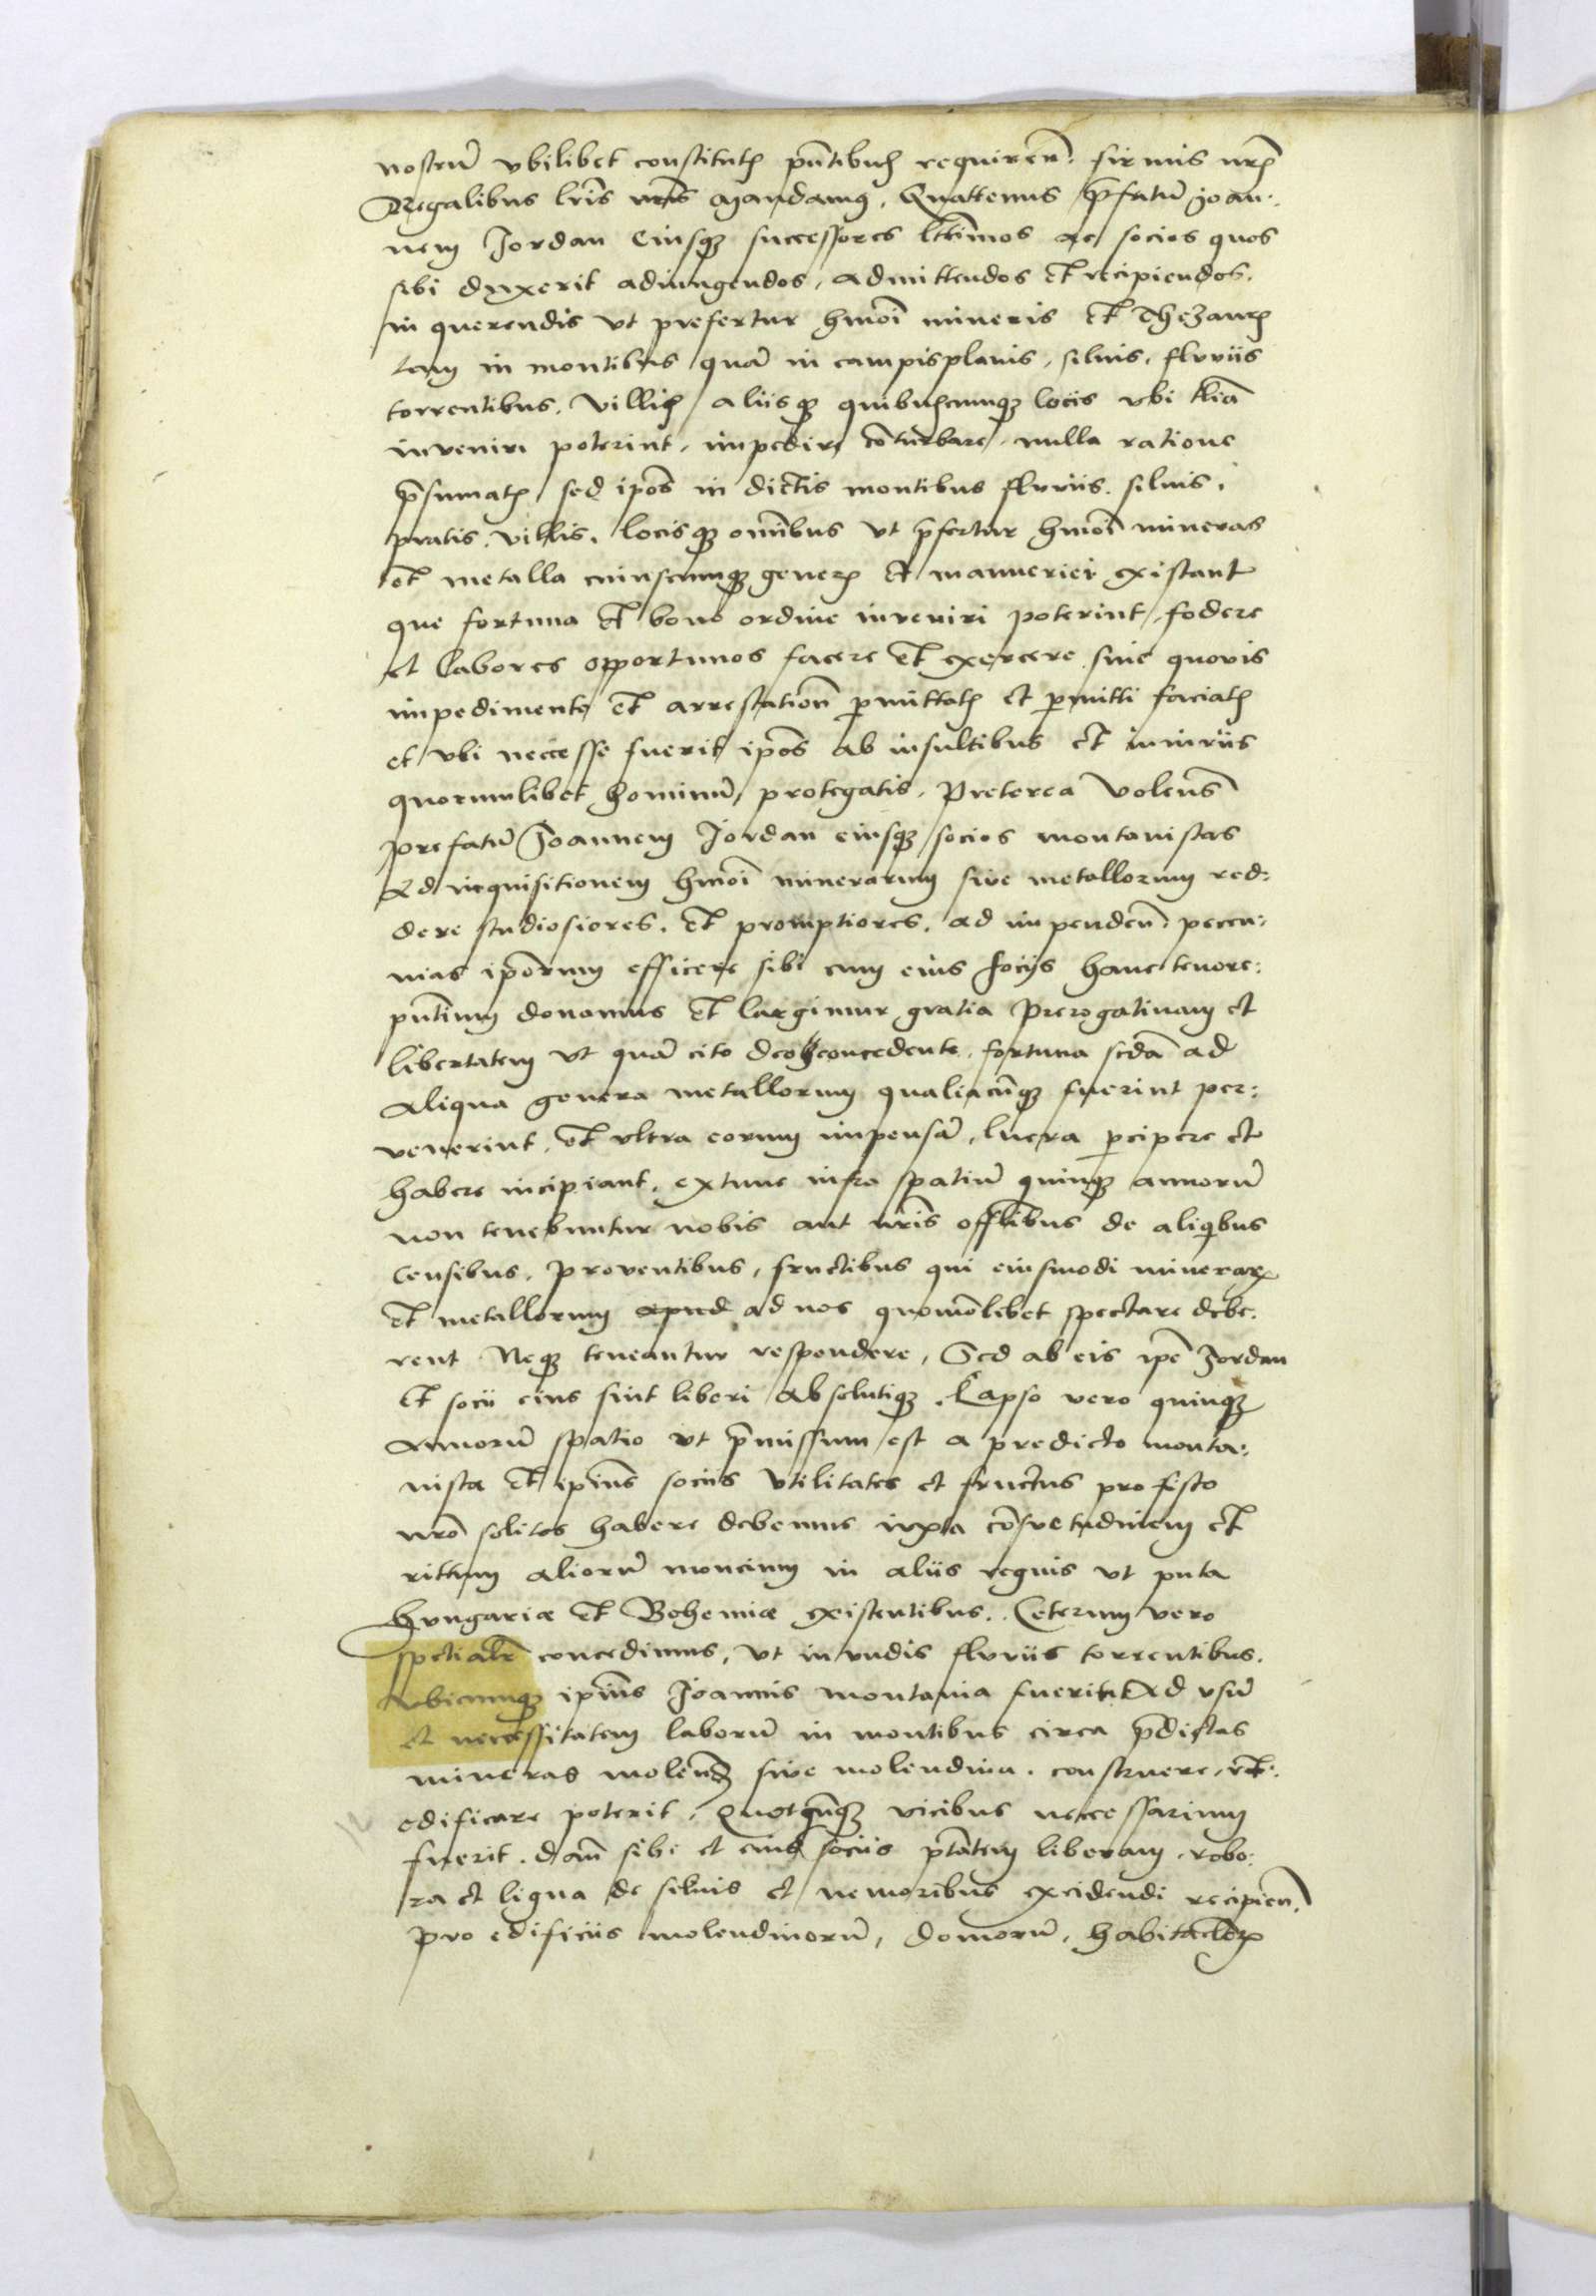 nostrū vbilibet constitutꝭ pn̄tibuꝭ requiren̄. firmis nrꝭ
Regalibus lr̄is nr̄is Mandamꝰ. Quattenus p̄fatū Joan:
nem Jordan Eiusqꝫ successores lt̄timos ac socios quos
sibi duxerit adiungendos, admittendos Et recipiendos,
in querendis vt prefertur hmōi mineris Et Thezaurꝭ
tam in montibus quā in campisplanis, siluis, fluviis
torrentibus, villiꝭ aliisqꝫ quibuꝭcumqꝫ locis vbi
inveniri poterint, impedire cōturbare, nulla ratione
p̄sumatꝭ sed ip̄os in dictis montibus fluviis. siluis,
pratis, villis, locisqꝫ om̄ibus vt p̄fertur hmōi mineras
et metalla cuiuscumqꝫ generꝭ Et maneriei existant
que fortuna Et bono ordine inveniri poterint, fodere
et labores opportunos facere Et exercere sine quovis
impedimento Et arrestation̄ p̱mittatꝭ et p̱mitti faciatꝭ
et vbi neccesse fuerit ip̄os ab insultibus et iniuriis
quorumlibet hominū, protegatis, Preterea volens
prefatū Joannem Jordan eiusqꝫ socios montanistas
Ad inquisitionem hmōi minerarum sive metallorum red:
dere studiosiores, Et promptiores, ad impenden̄. peccu:
nias ip̄orum efficere sibi cum eius socijs hanc tenore:
pn̄tium donamus Et largimur gratia Prerogativam et
libertatem vt quā cito deo concedente, fortuna ad
aliqua genera metallorum qualiacūqꝫ fuerint per:
venerint, vt vltra eorum impensā, lucra p̱cipere et
habere incipiant, extunc infra spatiū quinqꝫ annorū
non tenebuntur nobis aut nr̄is offi̅libus de aliqibus
Censibus, proventibus, fructibus qui eiusmodi minerarꝝ
Et metallorum apud ad nos quomōlibet spectare debe:
rent Neqꝫ teneantur respondere, Sed ab eis ip̄e Jordan
Et socii eius sint liberi Absolutiqꝫ. Lapso vero quinqꝫ
Annorū spatio vt p̄missum est a predicto monta:
nista Et ip̄ius sociis vtilitates et fructus pro fisco
nr̄o solitos habere debemus iuxta cōsvetudinem Et
rittum aliorū moncium in aliis regnis vt puta
Hungariæ Et Bohemiæ existentibus. Ceterum vero
spetialr̄ concedimus, vt in vndis fluviis torrentibus,
vbicumqꝫ ip̄ius Joannis montania fuerint Ad vsū
et necessitatem laborū in montibus circa p̄dictas
mineras sive molendina. construere, et.
edificare poterit, Quotcūqꝫ vicibus neccessarium
fuerit. dam̄ sibi et eius sociis ptātem liberam, robo:
ra et ligna de siluis et nemoribus excidendi recipien̄.
pro edificiis molendinorū, domorū, habitaclorꝝ